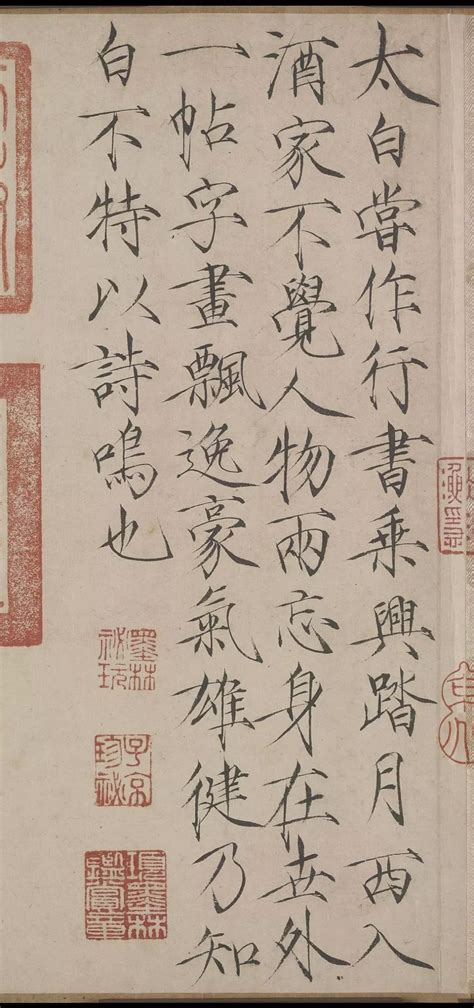 太白甞作行書乗興踏月西入
酒家不覺人物兩忘身在世外
一帖字畫飄逸豪氣雄健乃知
白不特以詩鳴也
墨林
祕玩
子京
珍祕
項墨林
鑑賞章